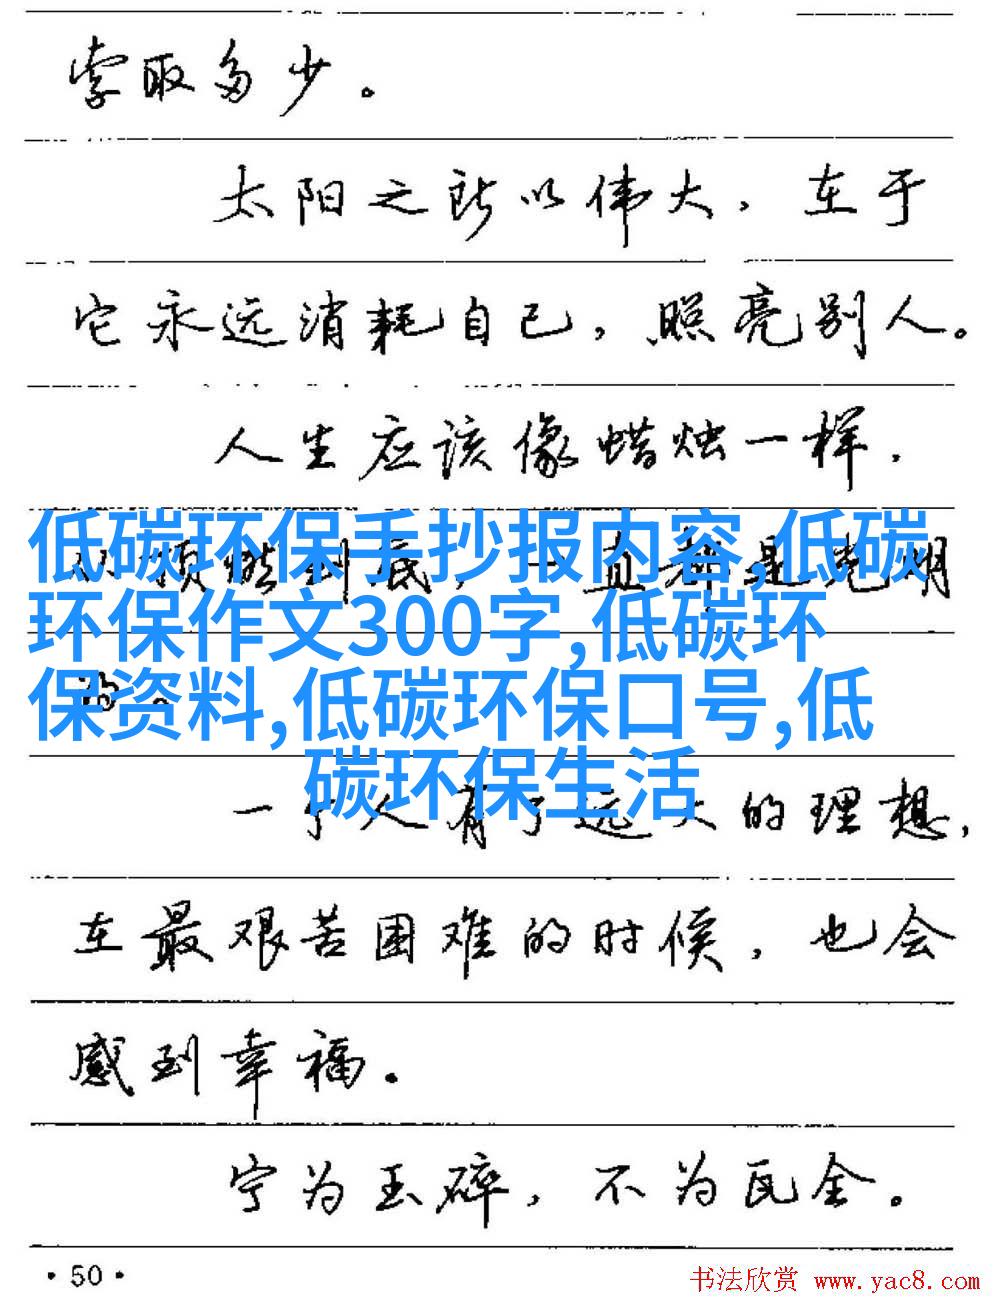 索取多少。
太阳之所以伟大，在于
它永远消耗自己，照亮别人。
人生应该像蜡烛一样，
低碳环保手抄报内容,低碳
环保作文300字,低碳环
保资料,低碳环保口号,低
碳环保生活
一个人有了远大的理想，
在最艰苦困难的时候，也会
感到幸福。
宁为玉碎，不为瓦全。
·50·
书法欣赏 www.yac8.com